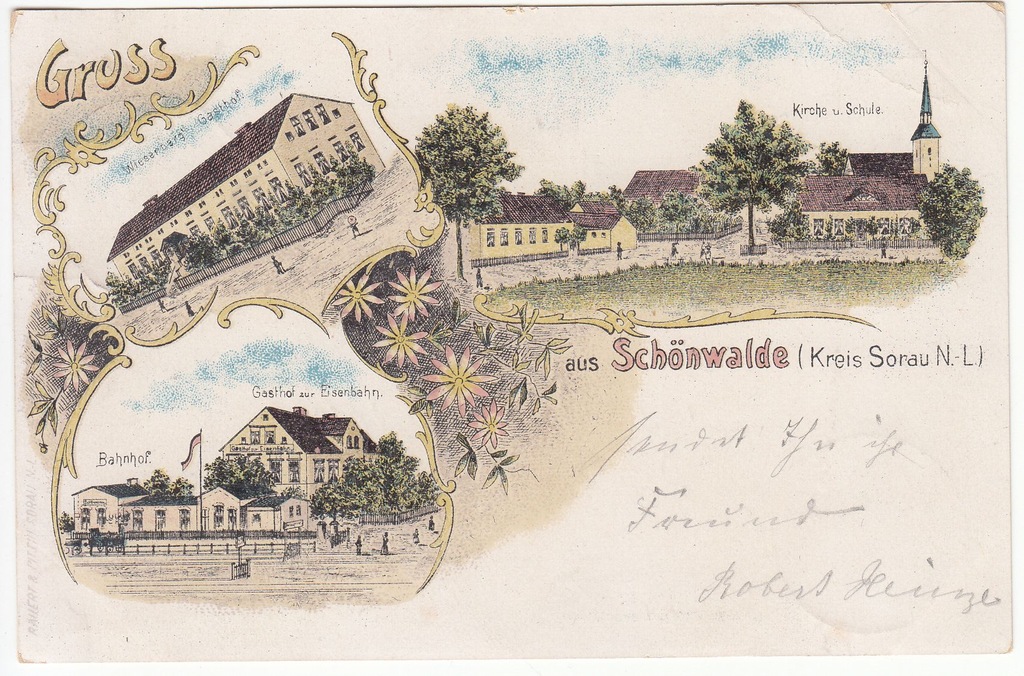 Gruss
Wiesenberg's Gasthof.
Kirche u. Schule.
aus Schönwalde (Kreis Sorau N.-L.)
Gasthof zur Eisenbahn.
Gasthof zur Eisenbahn
Bahnhof.
sendet Ihn ihr
Freund
Robert Heinze